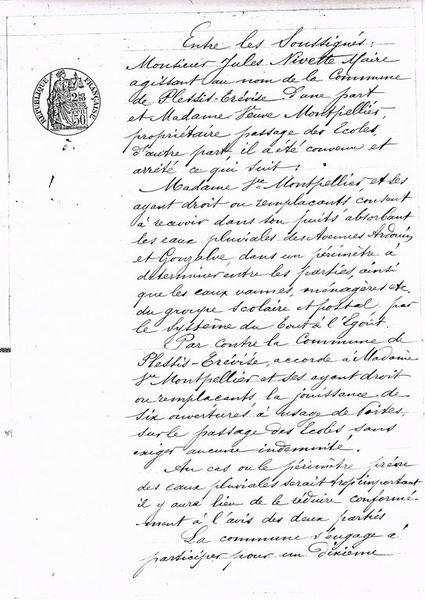 RÉPUBLIQUE FRANÇAISE
Entre les Soussignés:
Monsieur Jules Nivette Maire
agissant au nom de la Commune
de Plessis-Trévise d'une part
et Madame Veuve Montpellier,
propriétaire passage des Ecoles,
d'autre part, il a été convenu et
arrêté ce qui suit:
Madame Vve Montpellier et ses
ayant droit ou remplaçants consent
à recevoir dans son puits absorbant
les eaux pluviales des Avenues Ardouin
et Gonzalve, dans un périmètre à
déterminer entre les parties, ainsi
que les eaux vannes, ménagères etc,
du groupe scolaire & postal par
le Système du Tout à l'Egout.
Par contre la Commune de
Plessis-Trévise, accorde à Madame
Vve Montpellier et ses ayant droit
ou remplaçants, la jouissance de
six ouvertures à usage de Portes,
sur le passage des Ecoles sans
exiger aucune indemnité.
Au cas ou le périmètre prévu
des eaux pluviales serait trop important
il y aura lieu de le réduire conformé-
ment à l'avis des deux parties
La commune s'engage à
participer pour un dixième